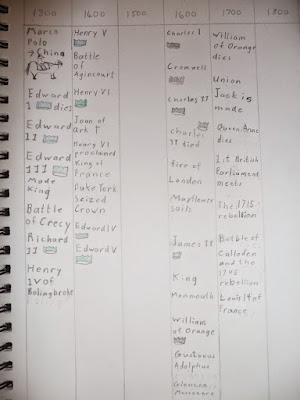 1300
1400
1500
1600
1700
1800
Marco
Polo
→ China
Edward
1 dies
Edward
11
Edward
111
Made
King
Battle
of Crecy
Richard
11
Henry
1V of
Bolingbroke
Henry V
Battle
of
Agincourt
Henry V1
Joan of
Ark †
Henry V1
proclaned
King of
France
Duke York
Seized
Crown
Edward 1V
Edward V
Charles 1
Cromwell
Charles 11
Charles
11 died
Fire of
London
Mayflower
sails
James 11
King
Monmouth
William
of Orange
Gustavus
Adolphus
Glencoe
Massacre
William
of Orange
dies
Union
Jack is
made
Queen Anne
dies
1st British
Parliament
meets
The 1715
rebellion
Battle of
Culloden
and the
1745
rebellion
Louis 14 of
France